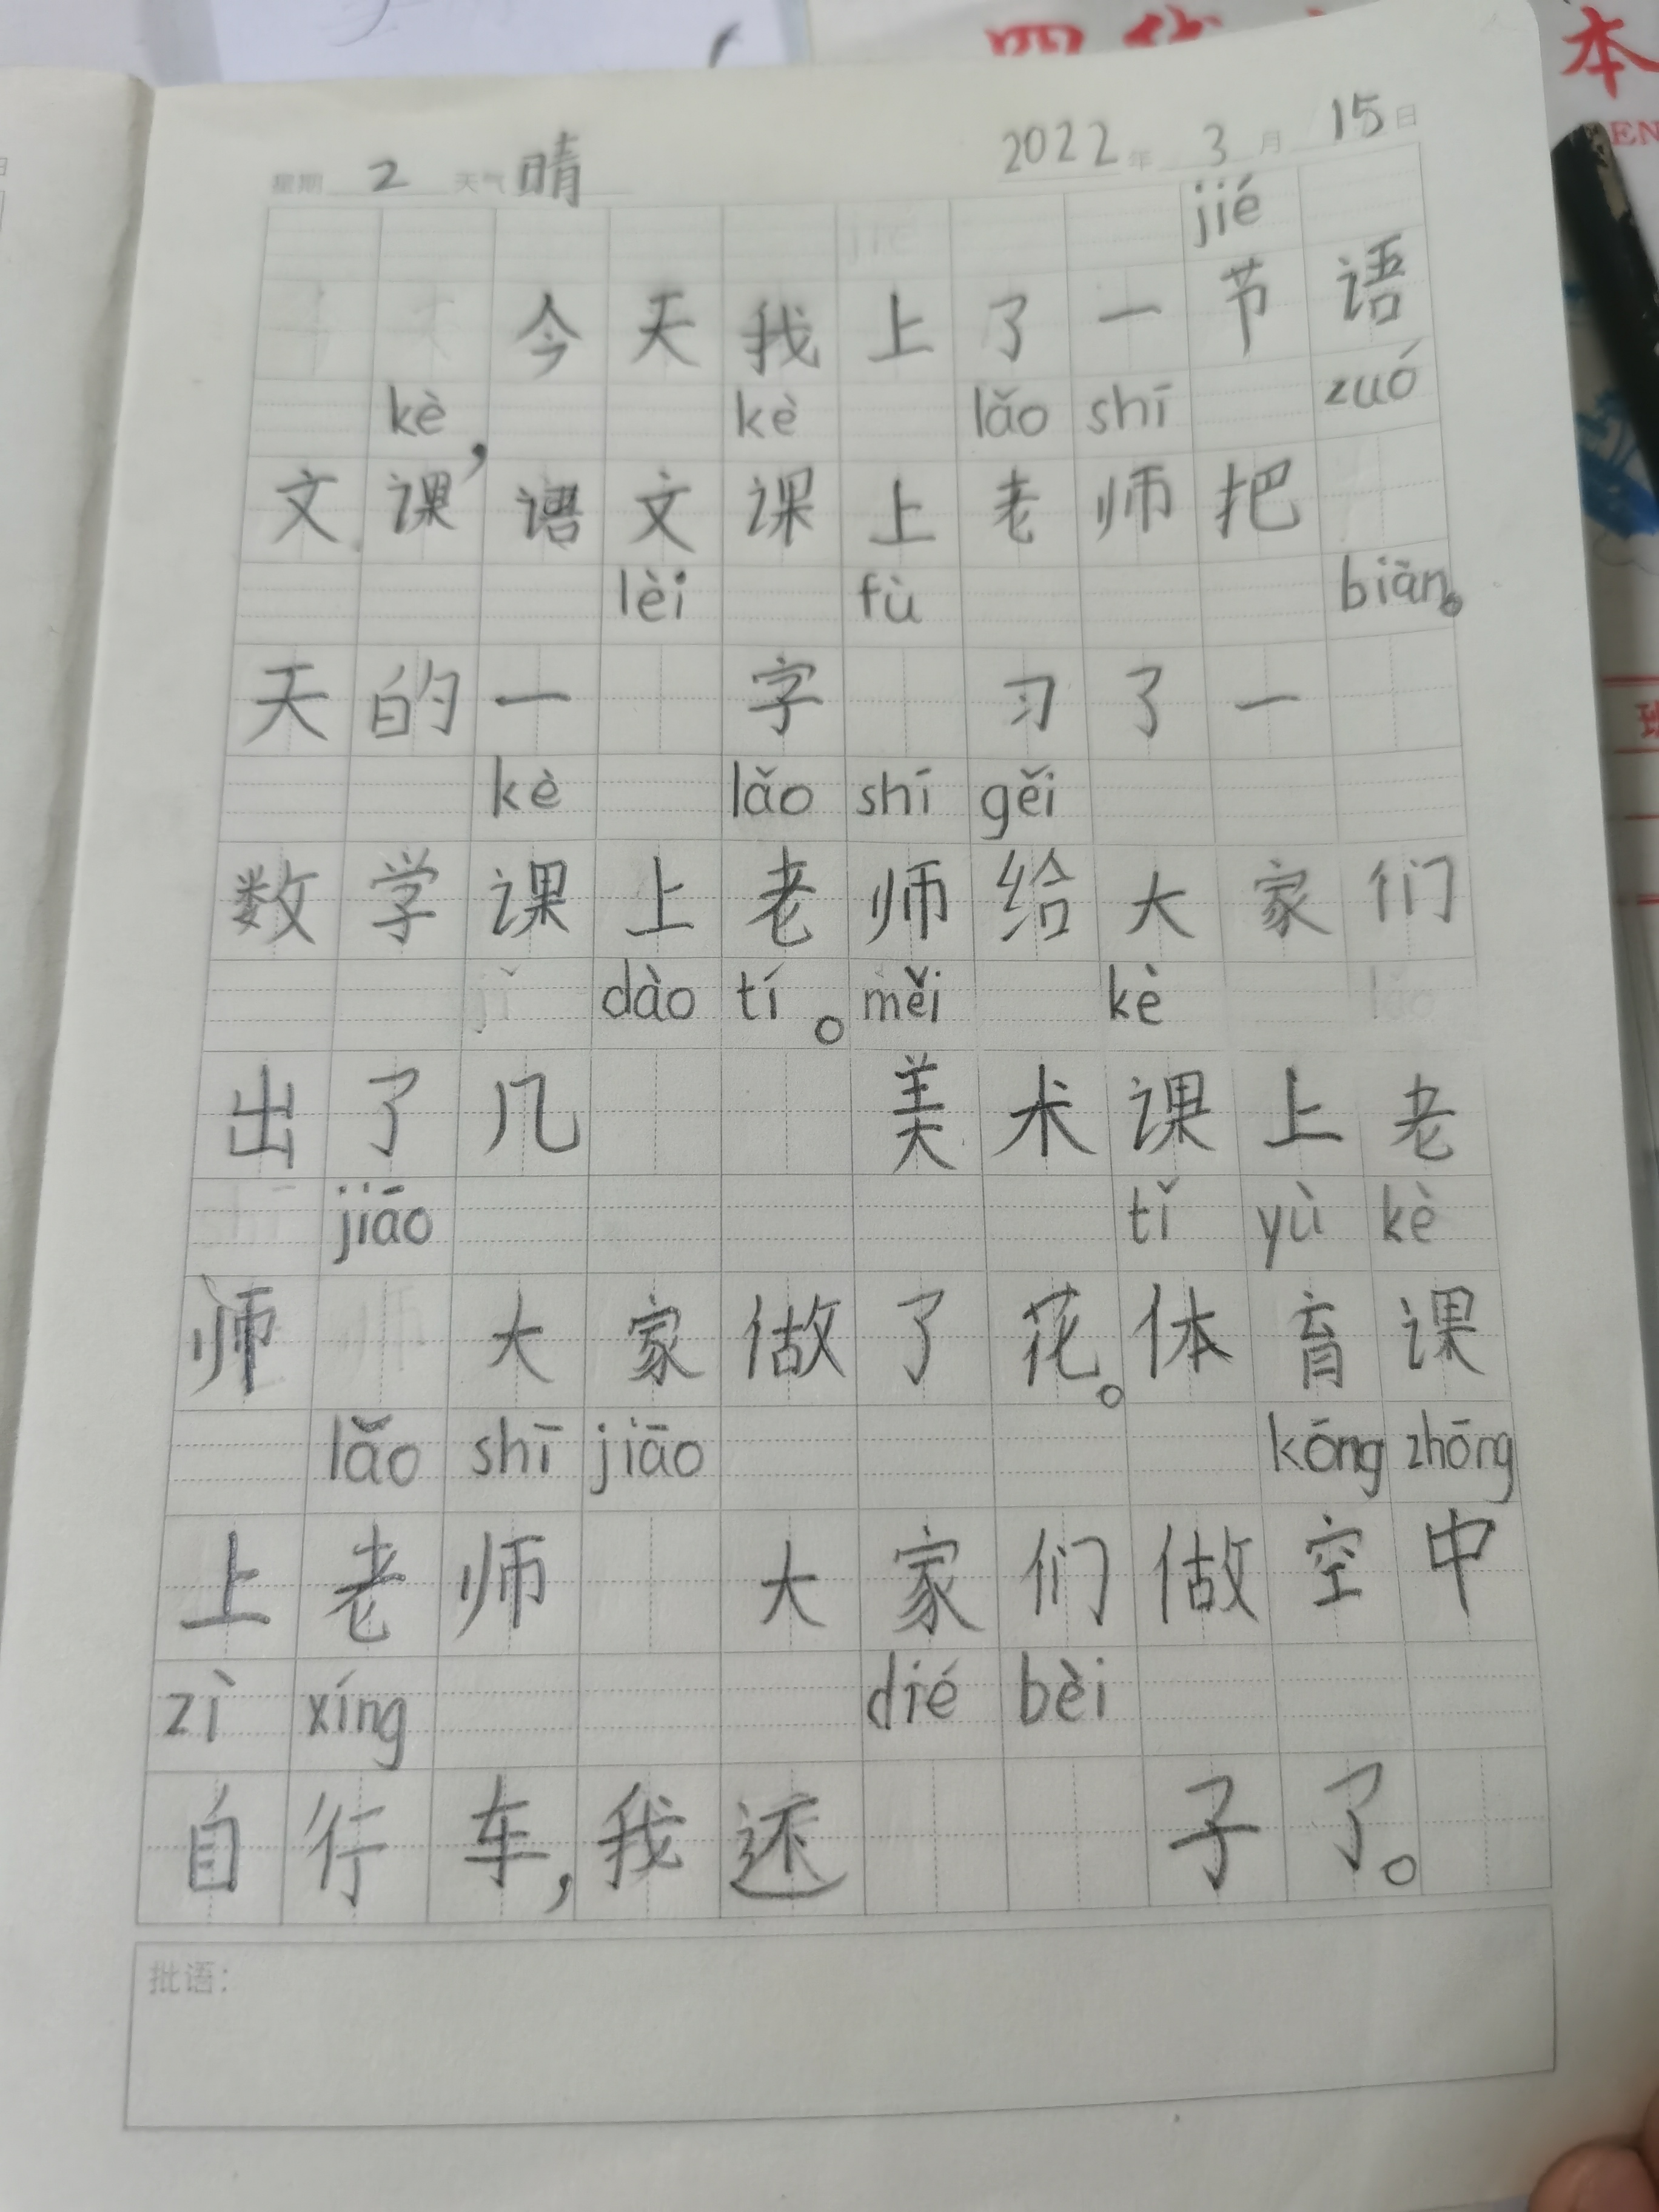 星期 2 天气 晴 2022 年 3 月 15 日
jié
今天我上了一节语
kè, kè lǎo shī zuó
文课,语文课上老师把
lèi fù biàn。
天的一 字 习了一
kè lǎo shī gěi
数学课上老师给大家们
dào tí。 měi kè
出了几 美术课上老
jiāo tǐ yù kè
师 大家做了花。体育课
lǎo shī jiāo kōng zhōng
上老师 大家们做空中
zì xíng dié bèi
自行车,我还 子了。
批语:
本